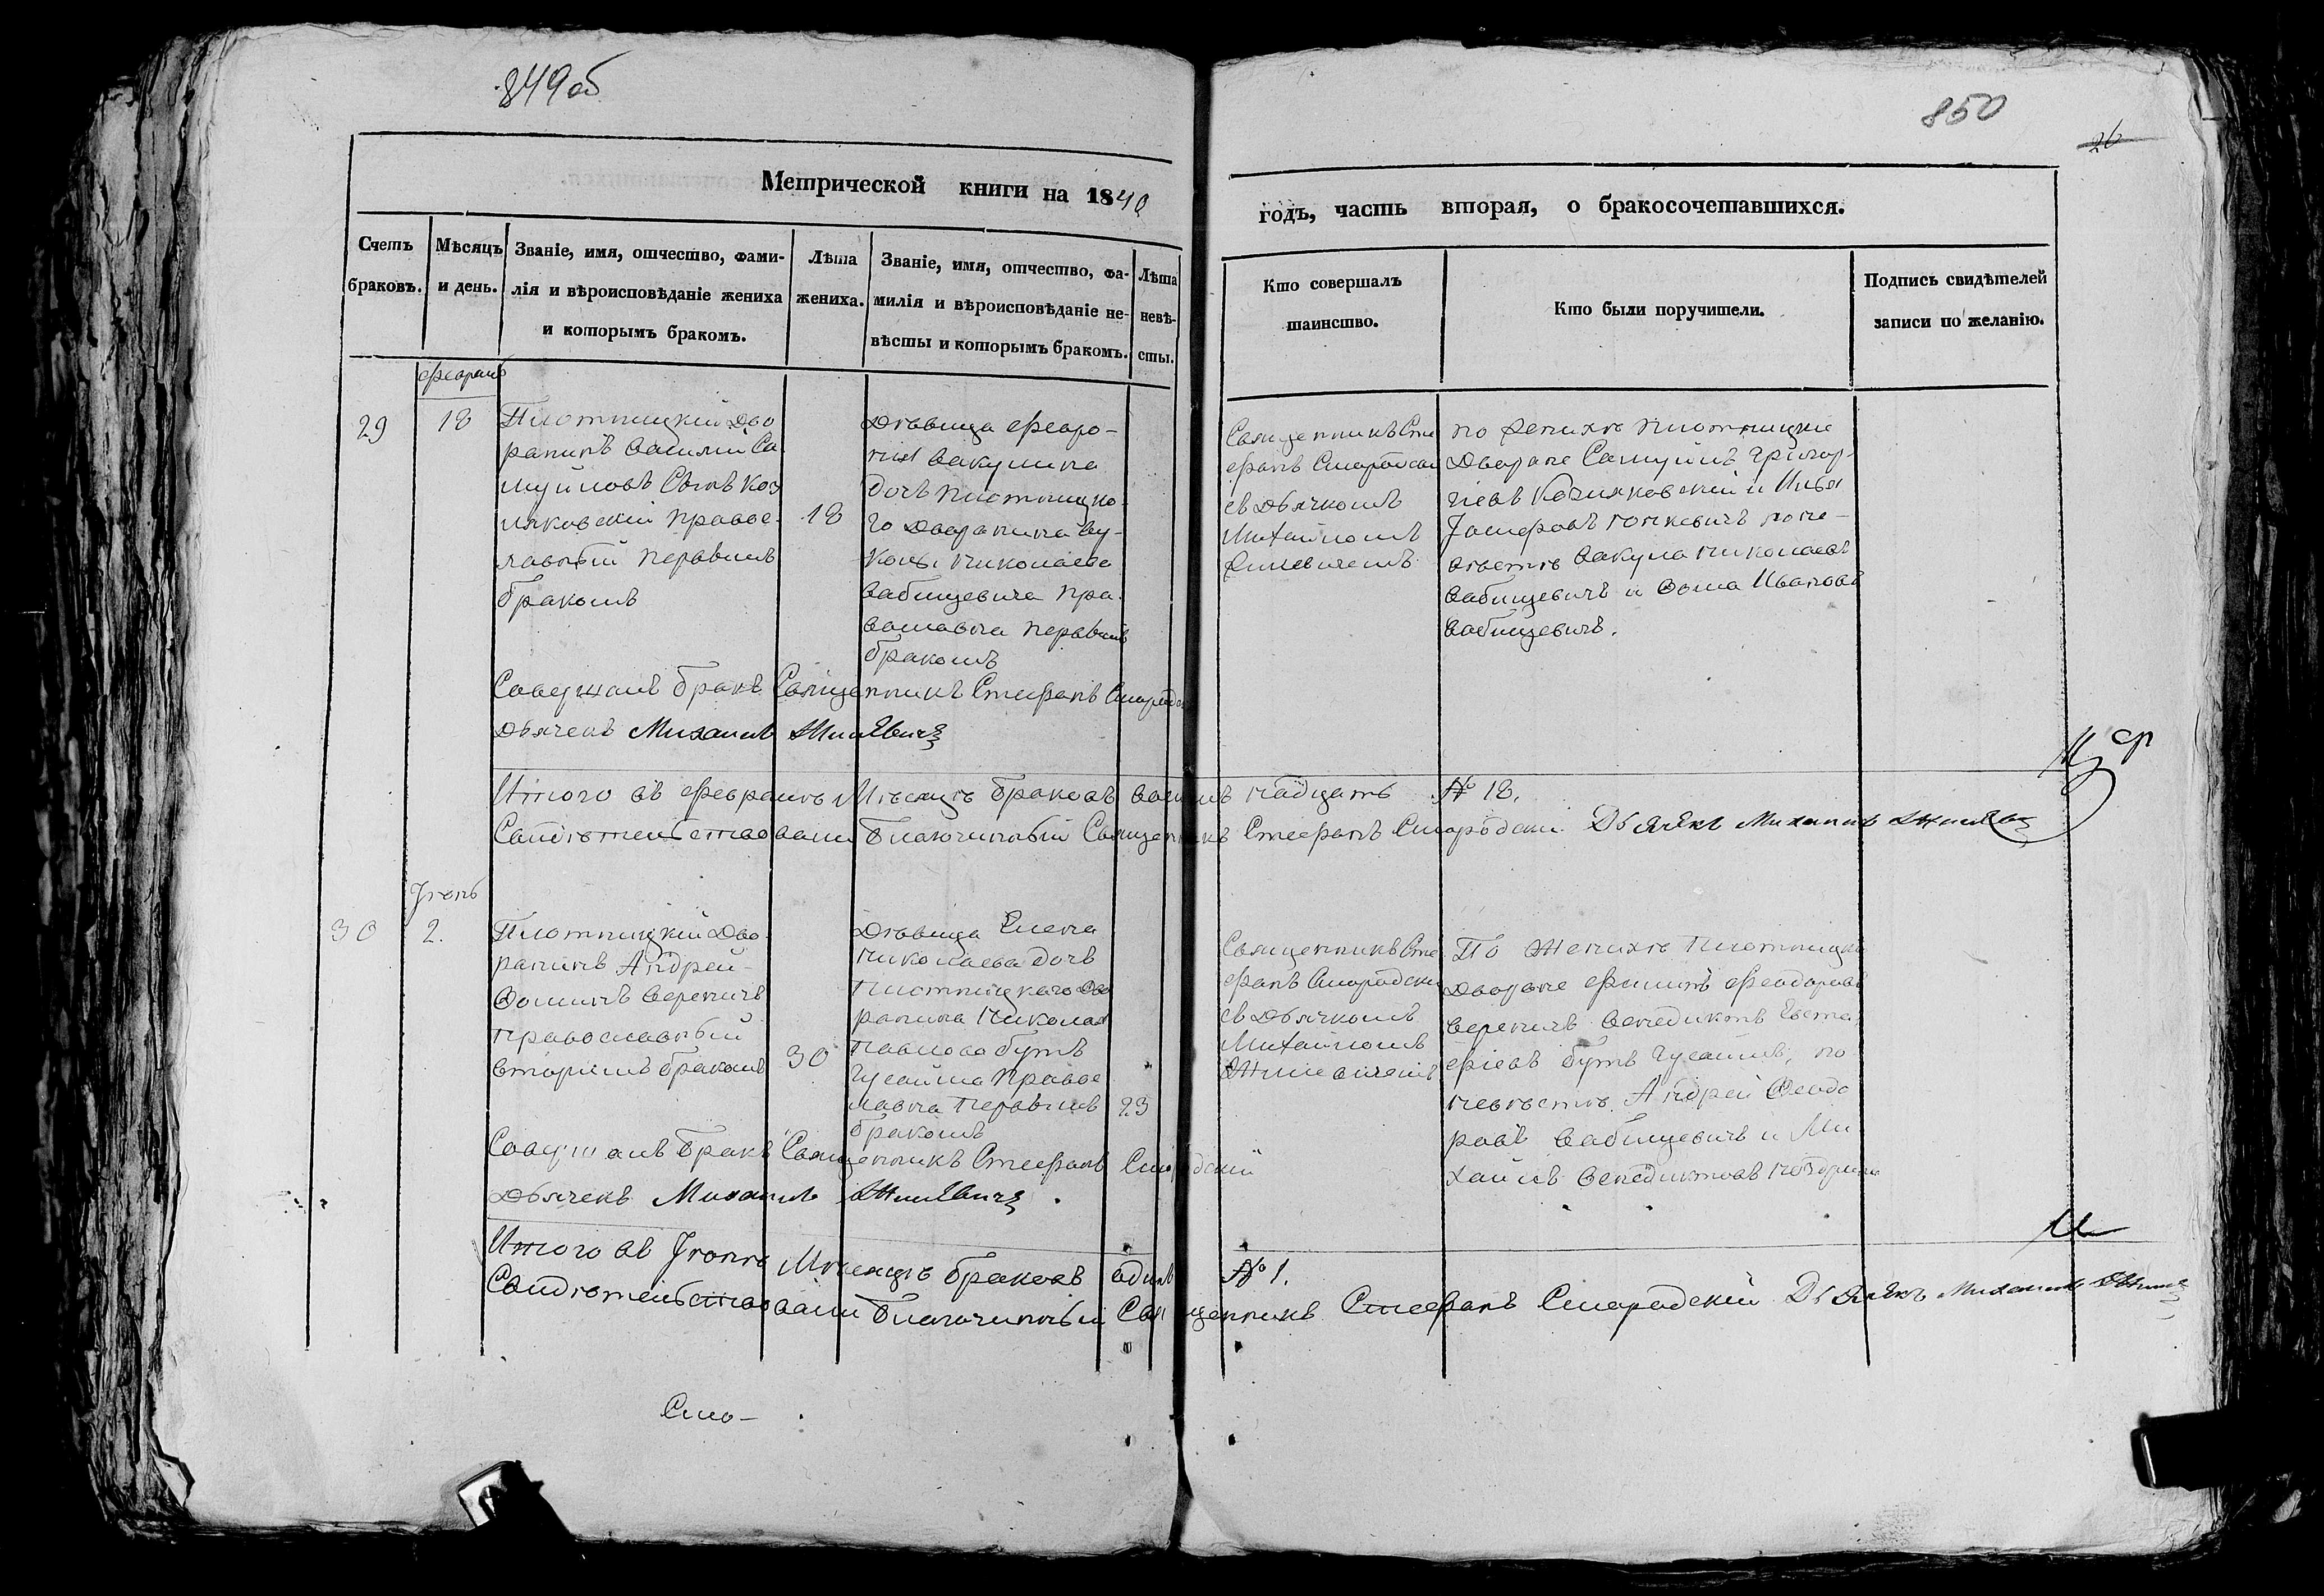 849об
850
26
Метрической книги на 1840
годъ, часть вторая, о бракосочетавшихся.
Счетъ браковъ.
Мѣсяцъ и день.
Званіе, имя, отчество, фами-
лія и вѣроисповѣданіе жениха
и которымъ бракомъ.
Лѣта
жениха.
Званіе, имя, отчество, фа-
милія и вѣроисповѣданіе не-
вѣсты и которымъ бракомъ.
Лѣта
невѣ-
сты.
Кто совершалъ
таинство.
Кто были поручители.
Подпись свидѣтелей
записи по желанію.
29
февраль
18
Плотницкій Дво
ранинъ Василій Са
муйловъ Сынъ Коз
ляковскій правос
лавный первымъ
бракомъ
18
Дѣвица Февро-
нія Вакулина
дочь плотницко
го Дворанина Ву-
колы Николаева
Вабищевича пра
вославна первымъ
бракомъ
Священникъ Сте
фанъ Смородски
съ Дьячкомъ
Михайломъ
Жилевичемъ
по Женихѣ плотницкіе
Дворане Самуилъ Григор-
іевъ Козляковскій и Илья
Іосифовъ поне-
вѣстѣ Вакула Николаевъ
Вабищевичъ и Фома Ивановъ
Вабищевичъ.
Совершалъ бракъ Священникъ Стефанъ Смородс
Дьячекъ Михаилъ Жилевичъ
Итого въ Февралѣ Мѣсяцѣ браковъ восемь надцать № 18.
Свидѣтельствовали Благочинный Священникъ Стефанъ Смородски Дьячекъ Михаилъ Жилевич
30
Іюнь
2.
Плотницкій Дво
ранинъ Андрей
Фоминъ Вереничъ
православный
вторымъ бракомъ
30
Дѣвица Елена
Николаева дочь
Плотницкаго Дво
ранина Николая
Павлова Бутъ
Гусаима правос
лавна первымъ
бракомъ
23
Священникъ Сте
фанъ Смородски
съ Дьячкомъ
Михайломъ
Жилевичемъ
По Женихѣ Плотницкі
Дворане Филипъ Феодоровъ
Вереничъ Венедиктъ Евста
фіевъ Бутъ Гусаимъ, по
невѣстѣ Андрей Феодо
ровъ Вабищевичъ и Ми
хаилъ Венедиктовъ
Совершалъ бракъ Священникъ Стефанъ Смородскій
Дьячекъ Михаилъ Жилевичъ.
Итого въ Іюнѣ Мѣсяцѣ браковъ одинъ № 1.
Свидѣтельствовали Благочинный Священникъ Стефанъ Смородскій Дьячекъ Михаилъ Жилев
Смо-